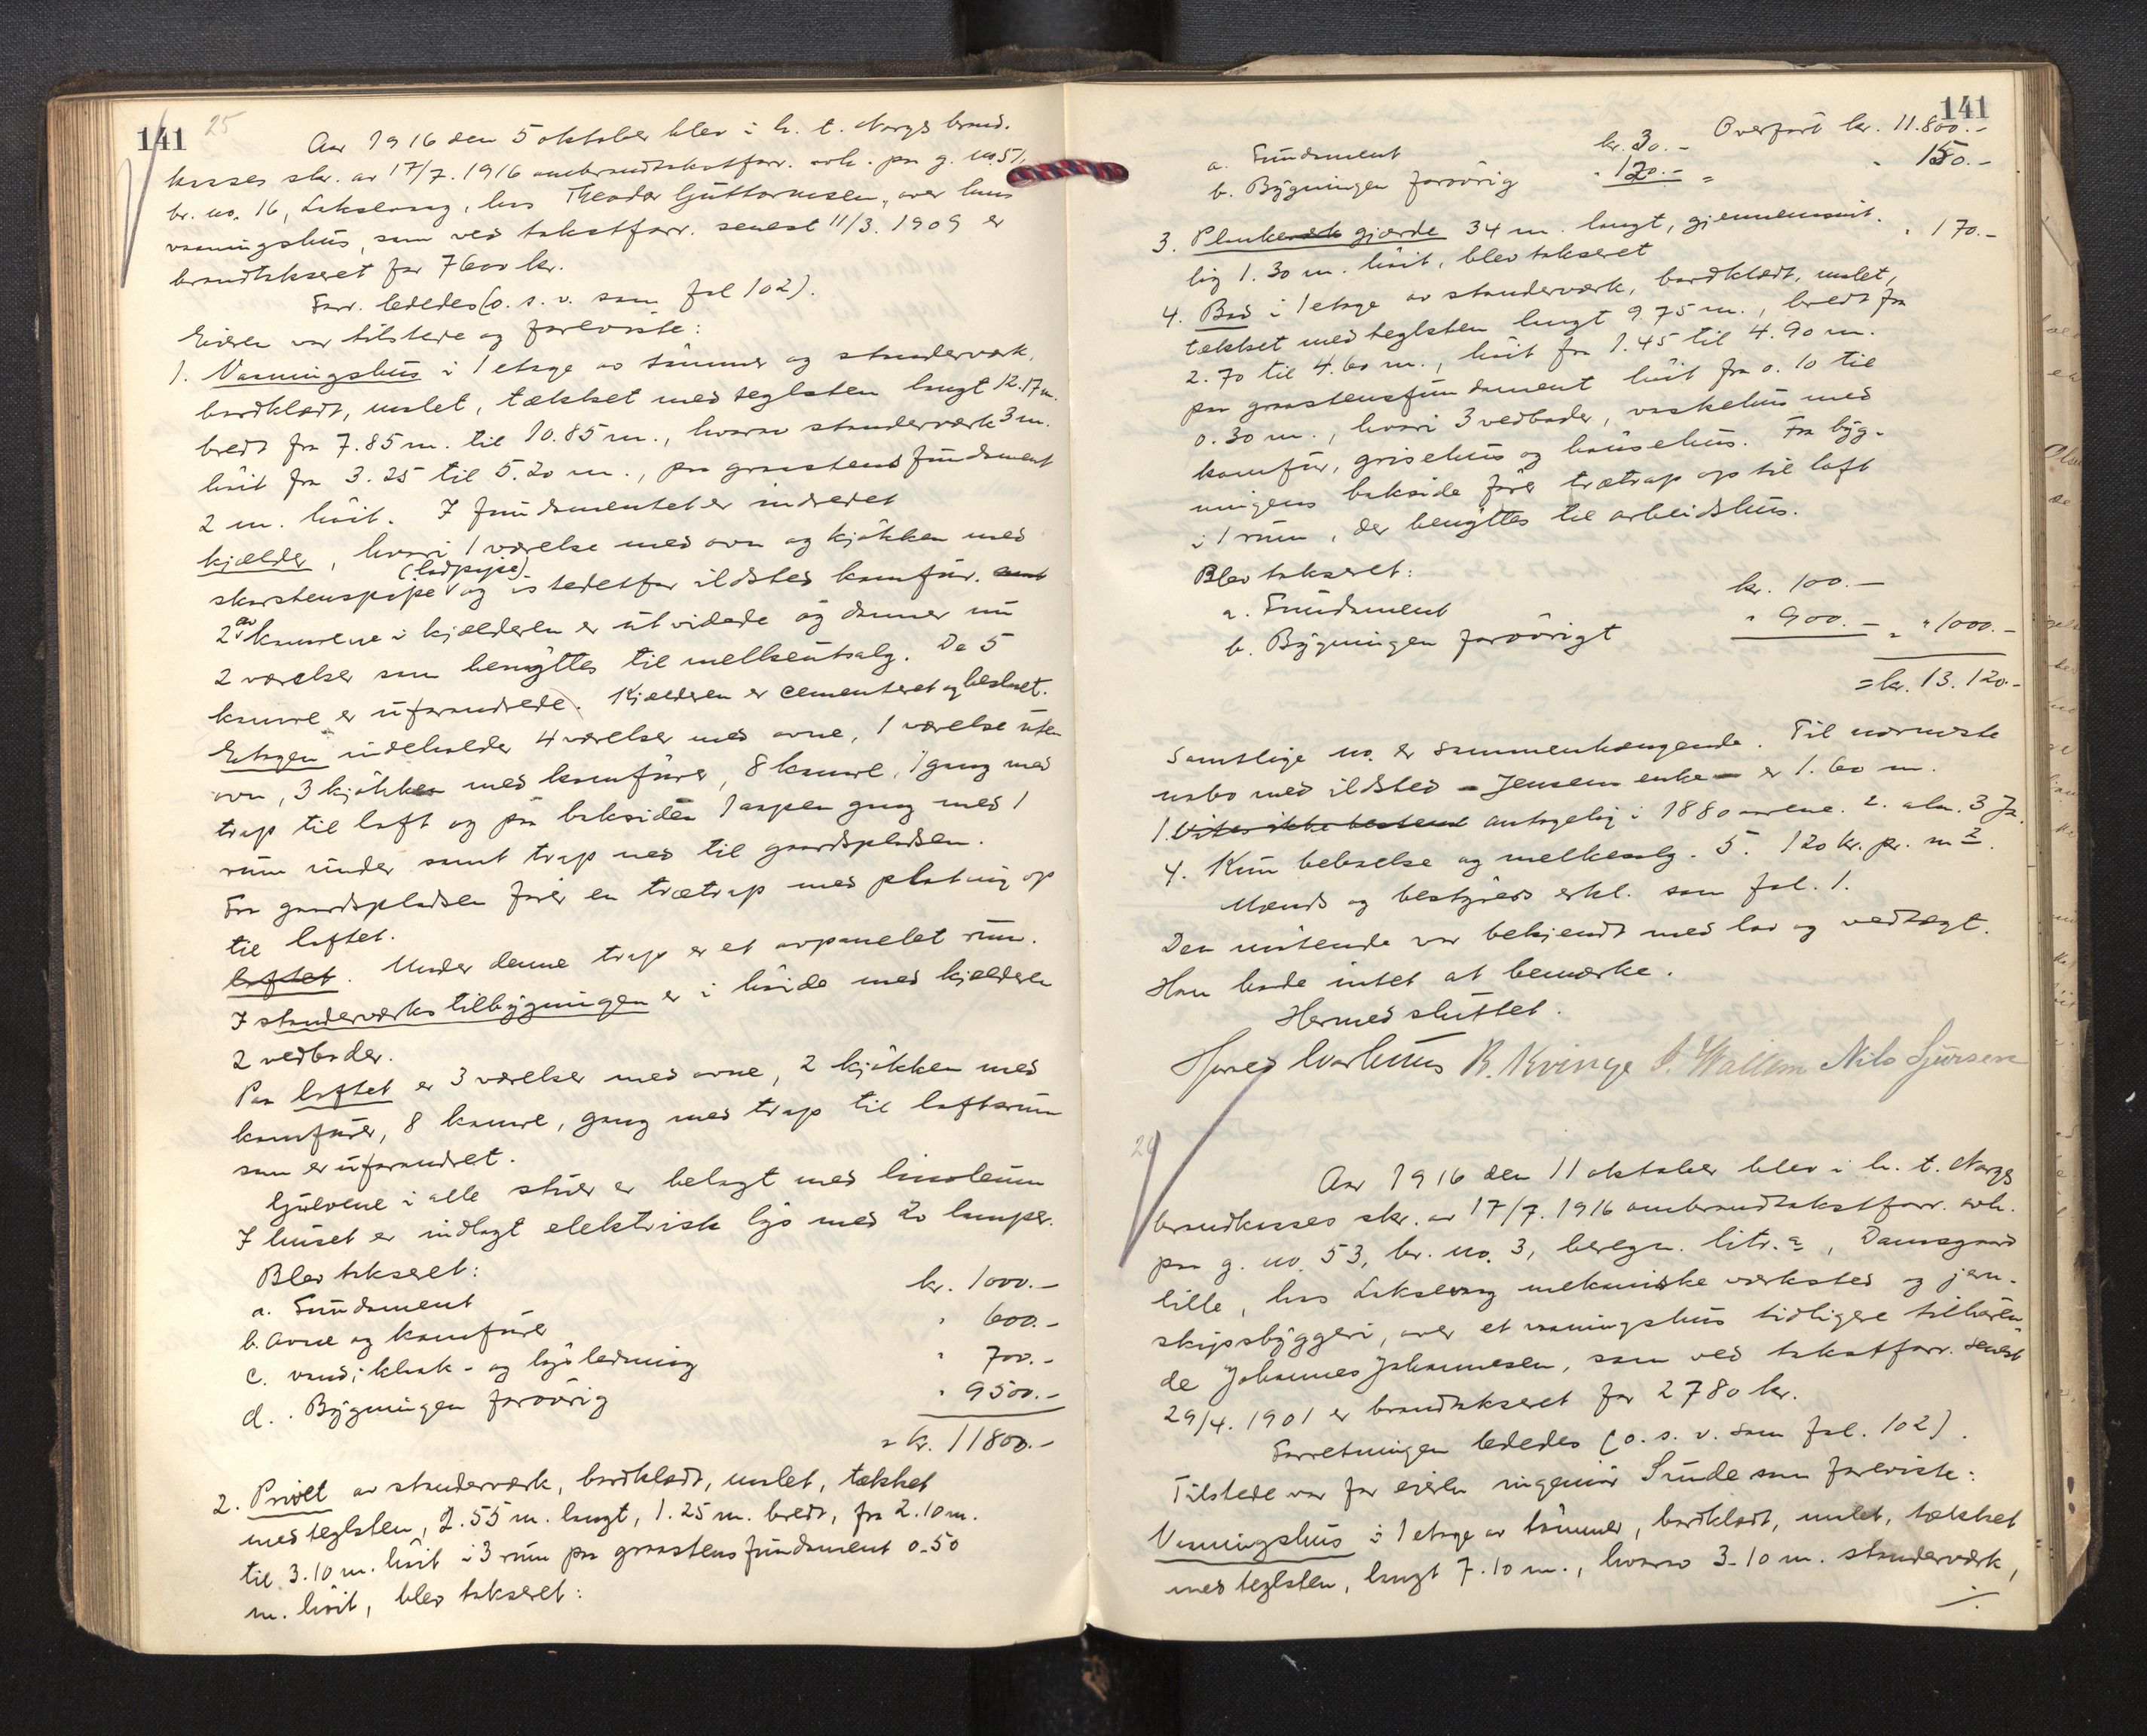 141 25
Aar 1916 den 5 oktober blev i h. t. Norges brand-
kasses skr. av 17/7. 1916 ombrandtakstforr. avh. paa g. no. 51,
br. no. 16, Laksevaag, hos Theodor Guttormsen, over hans
vaaningshus, som ved takstforr. senest 11/3. 1909 er
brandtakseret for 7600 kr.
Forr. lededes (o. s. v. som fol 102).
Eieren var tilstede og foreviste:
1. Vaaningshus i 1 etage av tömmer og standerværk,
bordklædt, malet, tækket med teglsten langt 12.17 m.
bredt fra 7.85 m. til 10.85 m., hvorav standerværk 3 m.
höit fra 3.25 til 5.20 m., paa graastens fundament
2 m. höit. I fundamentet er indredet
kjælder, hvori 1 værelse med ovn og kjökken med
skorstenspipe (lodpipe) og istedetfor ildsted komfur. samt
2 av kamrene i kjælderen er utvidede og danner nu
2 værelser som benyttes til melkeutsalg. De 5
kamre er uforandrede. Kjælderen er cementeret og beslaaet.
Etagen indeholder 4 værelser med ovne, 1 værelse uten
ovn, 3 kjökken med komfurer, 8 kamre, 1 gang med
trap til loft og på baksiden 1 aapen gang med 1
rum under samt trap ned til gaardspladsen.
Fra gaardspladsen förer en trætrap med plating op
til loftet.
loftet. Under denne trap er et avpanelet rum.
I standerværks tilbygningen er i höide med kjælderen
2 vedboder.
Paa loftet er 3 værelser med ovne, 2 kjökken med
komfurer, 8 kamre, gang med trap til loftsrum
som er uforandret.
Gulvene i alle stuer er belagt med linoleum
I huset er indlagt elektrisk lys med 20 lamper.
Blev takseret:
a. Fundament kr. 1000.-
b. Ovne og komfurer " 600.-
c. vand-, kloak- og lysledning " 700.-
d. Bygningen forövrig " 9500.-
= kr. 11800.-
2. Privet av standerværk, bordklædt, malet, tækket
med teglsten, 2.55 m. langt, 1.25 m. bredt, fra 2.10 m.
til 3.10 m. höit i 3 rum paa graastens fundament 0.50
m. höit, blev takseret:
141
Overfört kr. 11.800.-
a. Fundament kr. 30.-
b. Bygningen forövrig " 120.- = " 150.-
3. Plankeverk gjærde 34 m. langt, gjennemsnit-
lig 1.30 m. höit, blev takseret " 170.-
4. Bod i 1 etage av standerværk, bordklædt, malet,
tækket med teglsten langt 9.75 m., bredt fra
2.70 til 4.60 m., höit fra 1.45 til 4.90 m.
paa graastensfundament höit fra 0.10 til
0.30 m., hvori 3 vedboder, vaskehus med
komfur, grisehus og hönsehus. Fra byg-
ningens bakside förer trætrap op til loft
i 1 rum, der benyttes til arbeidshus.
Blev takseret:
a. Fundament kr. 100.-
b. Bygningen forövrigt " 900.- = " 1000.-
= kr. 13.120.-
Samtlige no. er sammenhængende. Til nærmeste
nabo med ildsted - Jensens enke - er 1.60 m.
1. Vites ikke bestemt antagelig i 1880 aarene. 2. alm. 3 Ja.
4. Kun beboelse og melkesalg. 5. 120 kr. pr. m2.
Mænds og bestyrers erkl. som fol. 1.
Den mötende var bekjendt med lov og vedtægt.
Han hadde intet at bemærke.
Hermed sluttet.
B. Kvinge J. Wallem Nils Sjursen
Aar 1916 den 11 oktober blev i h. t. Norges
brandkasses skr. av 17/7. 1916 ombrandtakstforr. avh.
paa g. no. 53, br. no. 3, beregn. litr. a, Damsgaard
lille, hos Laksevaag mekaniske værksted og jern-
skipsbyggeri, over et vaaningshus tidligere tilhören-
de Johannes Johannesen, som ved takstforr. senest
29/4. 1901 er brandtakseret for 2780 kr.
Forretningen lededes (o. s. v. som fol. 102).
Tilstede var for eieren ingeniör Sunde som foreviste:
Vaaningshus i 1 etage av tömmer, bordklædt, malet, tækket
med teglsten, langt 7.10 m., hvorav 3.10 m. standerværk,